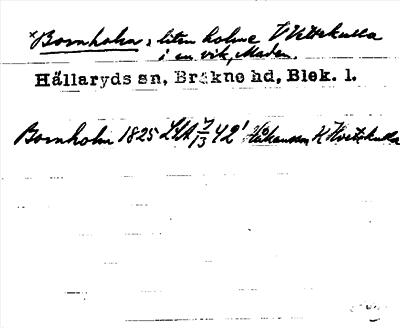 ×Bornholm, liten holme V Hvitskulla
i en vik, Maden.
Hällaryds sn, Bräkne hd, Blek. l.
Bornholm 1825 LSA 7/13 42' Håkansson K Hvitskulla